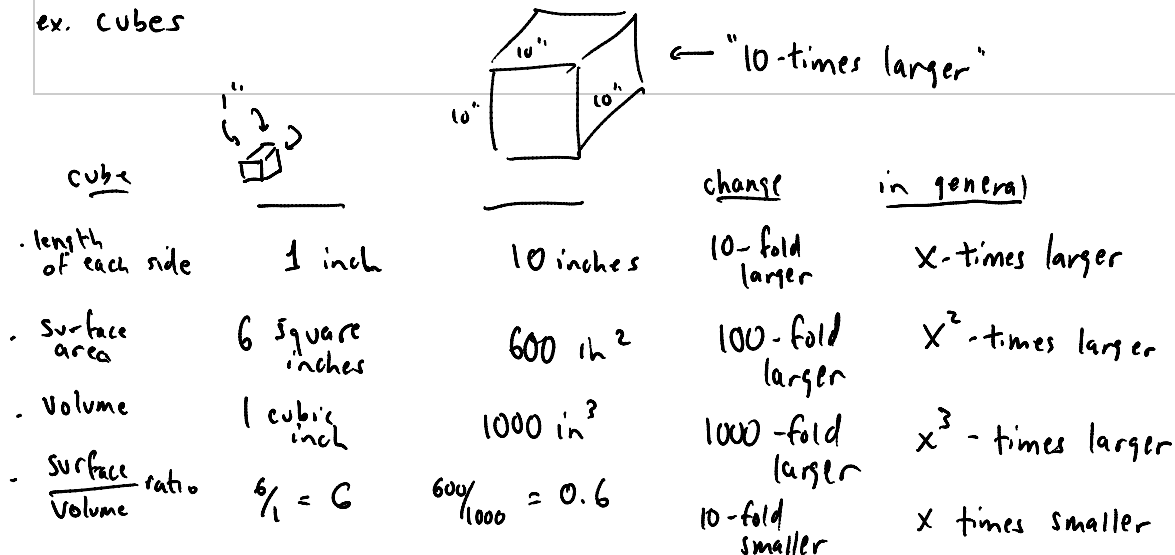 ex. cubes
10" 10" 10" ← "10-times larger"
1"
cube change in general
. length of each side 1 inch 10 inches 10-fold larger x-times larger
. surface area 6 square inches 600 in² 100-fold larger x²-times larger
. Volume 1 cubic inch 1000 in³ 1000-fold larger x³-times larger
. surface/volume ratio 6/1 = 6 600/1000 = 0.6 10-fold smaller x times smaller